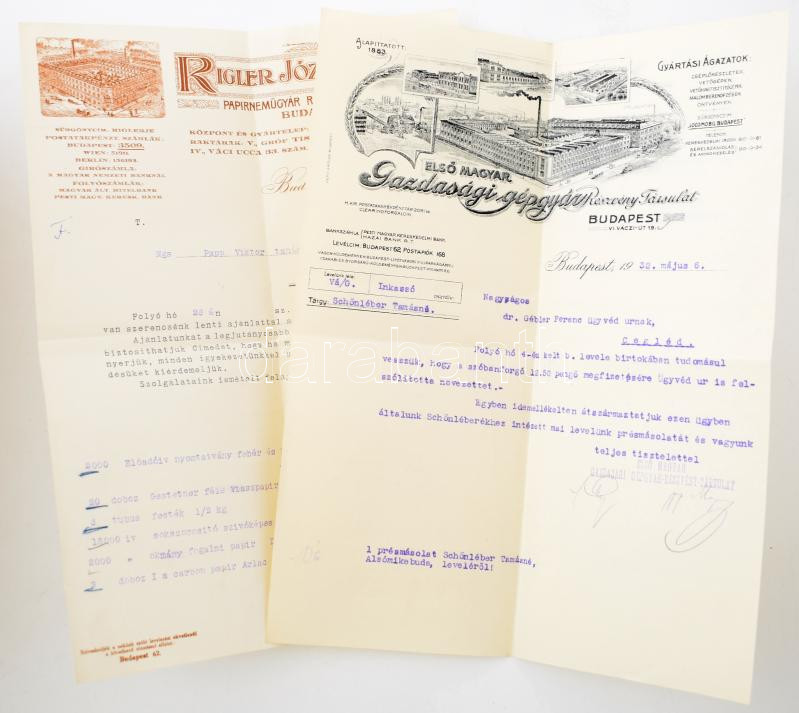 RIGLER JÓZ
PAPIRNEMÜGYÁR R
BUDA
SÜRGÖNYCIM: RIGLERJE
POSTATAKPÉNZT. SZÁMLÁK:
BUDAPEST: 3509.
WIEN:
BERLIN:
GIRÓSZÁMLA:
A MAGYAR NEMZETI BANKNÁL
FOLYÓSZÁMLÁK:
MAGYAR ÁLT. HITELBANK
PESTI MAGY. KERESK. BANK
KÖZPONT ÉS GYÁRTELEP:
RAKTÁRAK: V., GRÓF TIS
IV., VÁCI UCCA 33. SZÁM.
Bud
T.
Ngs Papp Viktor
Folyó hó 28 án sz.
van szerencsénk lenti ajánlattal s
Ajánlatunkat a legjutányosabb
biztosithatjuk Cimedet, hogy ha m
nyerjük, minden igyekezetünkkel
désüket kiérdemeljük.
Szolgálataink ismételt
2000 Előadóiv nyomtatvány fehér és
20 doboz Gestetner féle Viaszpapir
3 tubus festék 1/2 kg
12000 iv sokszorositó szivóképes
2000 " okmány fogalmi papir
3 doboz I a carbon papir Arlac
Budapest 62.
ALAPITTATOTT:
1863
GYÁRTÁSI ÁGAZATOK:
CSÉPLŐKÉSZLETEK,
VETŐGÉPEK,
MALOMBERENDEZÉSEK
ÖNTVÉNYEK.
SÜRGÖNYCIM:
"LOCOMOBIL BUDAPEST"
TELEFON:
ELSŐ MAGYAR
Gazdasági gépgyár Részvény Társulat
BUDAPEST
VI. VÁCZI-ÚT 19.
M. KIR. POSTATAKARÉKPÉNZTÁR
CLEARINGFORGALOM
BANKSZÁMLA: PESTI MAGYAR KERESKEDELMI BANK,
HAZAI BANK R. T.
LEVÉLCIM: BUDAPEST 62, POSTAFIÓK 168
Levelünk jele:
Vá/G. Inkassó
Tárgy: Schönléber Tamásné.
Budapest, 1932. május 6.
Nagyságos
dr. Gébler Ferenc ügyvéd urnak,
Cegléd.
Folyó hó 4-én kelt b. levele birtokában tudomásul
vesszük, hogy a szóbanforgó 12.50 pengő megfizetésére ügyvéd ur is fel-
szólitotta nevezettet.-
Egyben idemellékelten átszármaztatjuk ezen ügyben
általunk Schönléberékhez intézett mai levelünk présmásolatát és vagyunk
teljes tisztelettel
ELSŐ MAGYAR
GAZDASÁGI GÉPGYÁR-RÉSZVÉNY-TÁRSULAT
1 présmásolat Schönléber Tamásné,
Alsómikebuda, leveléről!
darabanth